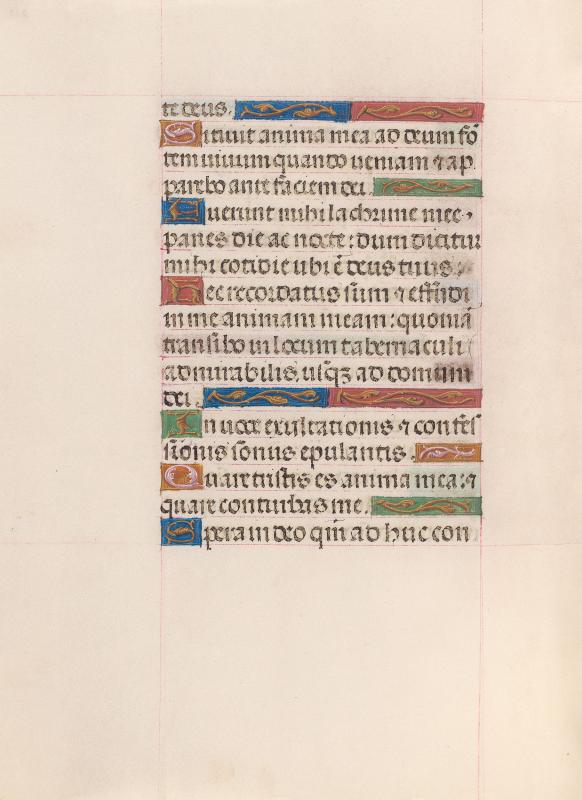 te deus.
Sitiuit anima mea ad deum fō
tem uiuum quando ueniam ⁊ ap
parebo ante faciem dei.
Fuerunt mihi lachrime mee
panes die ac nocte: dum dicitur
mihi cotidie ubi ē deus tuus.
Hec recordatus sum ⁊ effudi
in me animam meam: quoniā
transibo in locum tabernaculi
admirabilis, usqꝫ ad domum
dei.
In uoce exultationis ⁊ confes
sionis sonus epulantis.
Quare tristis es anima mea: ⁊
quare conturbas me.
Spera in deo qm̄ ad huc con